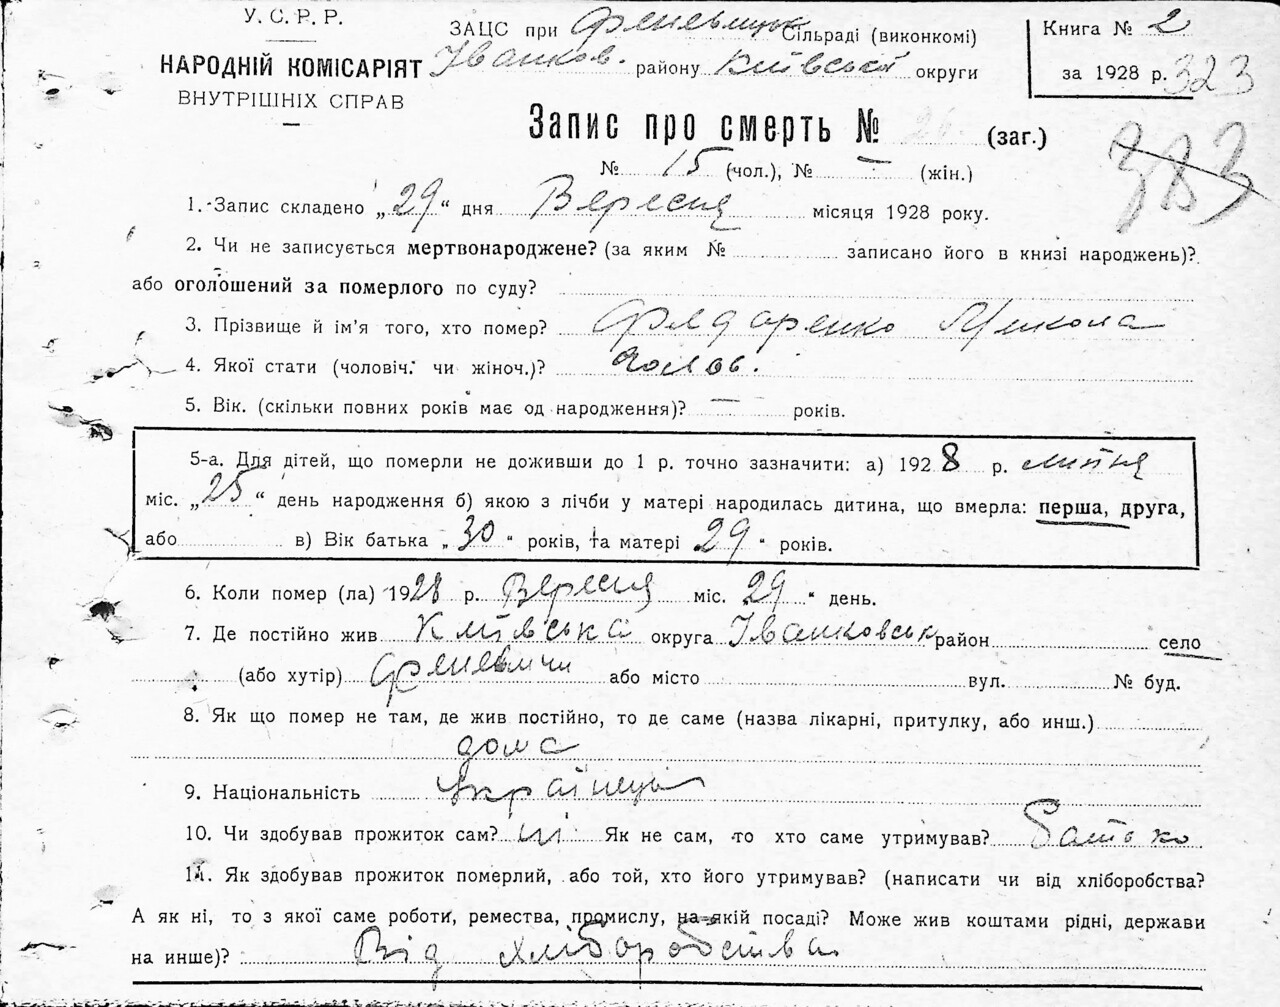 У. С. Р. Р.
НАРОДНІЙ КОМІСАРІЯТ
ВНУТРІШНІХ СПРАВ
ЗАЦС при Феневицьк Сільраді (виконкомі)
Іванков. району Київської округи
Книга № 2
за 1928 р. 323
383
Запис про смерть № 26 (заг.)
№ 15 (чол.), № — (жін.)
1. Запис складено „29" дня Вересня місяця 1928 року.
2. Чи не записується мертвонароджене? (за яким № записано його в книзі народжень)?
або оголошений за померлого по суду?
3. Прізвище й ім'я того, хто помер? Федоренко Микола
4. Якої стати (чоловіч. чи жіноч.)? чолов.
5. Вік. (скільки повних років має од народження)? — років.
5-а. Для дітей, що померли не доживши до 1 р. точно зазначити: а) 1928 р. липня
міс. „25" день народження б) якою з лічби у матері народилась дитина, що вмерла: перша, друга,
або в) Вік батька „30" років, та матері 29" років.
6. Коли помер (ла) 1928 р. Вересня міс. 29" день.
7. Де постійно жив Київська округа Іванковськ район село
(або хутір) Феневичи або місто вул. № буд.
8. Як що помер не там, де жив постійно, то де саме (назва лікарні, притулку, або инш.)
дома
9. Національність Українець
10. Чи здобував прожиток сам? ні Як не сам, то хто саме утримував? батько
11. Як здобував прожиток померлий, або той, хто його утримував? (написати чи від хліборобства?
А як ні, то з якої саме роботи, ремества, промислу, на якій посаді? Може жив коштами рідні, держави
на инше)? Від хліборобства